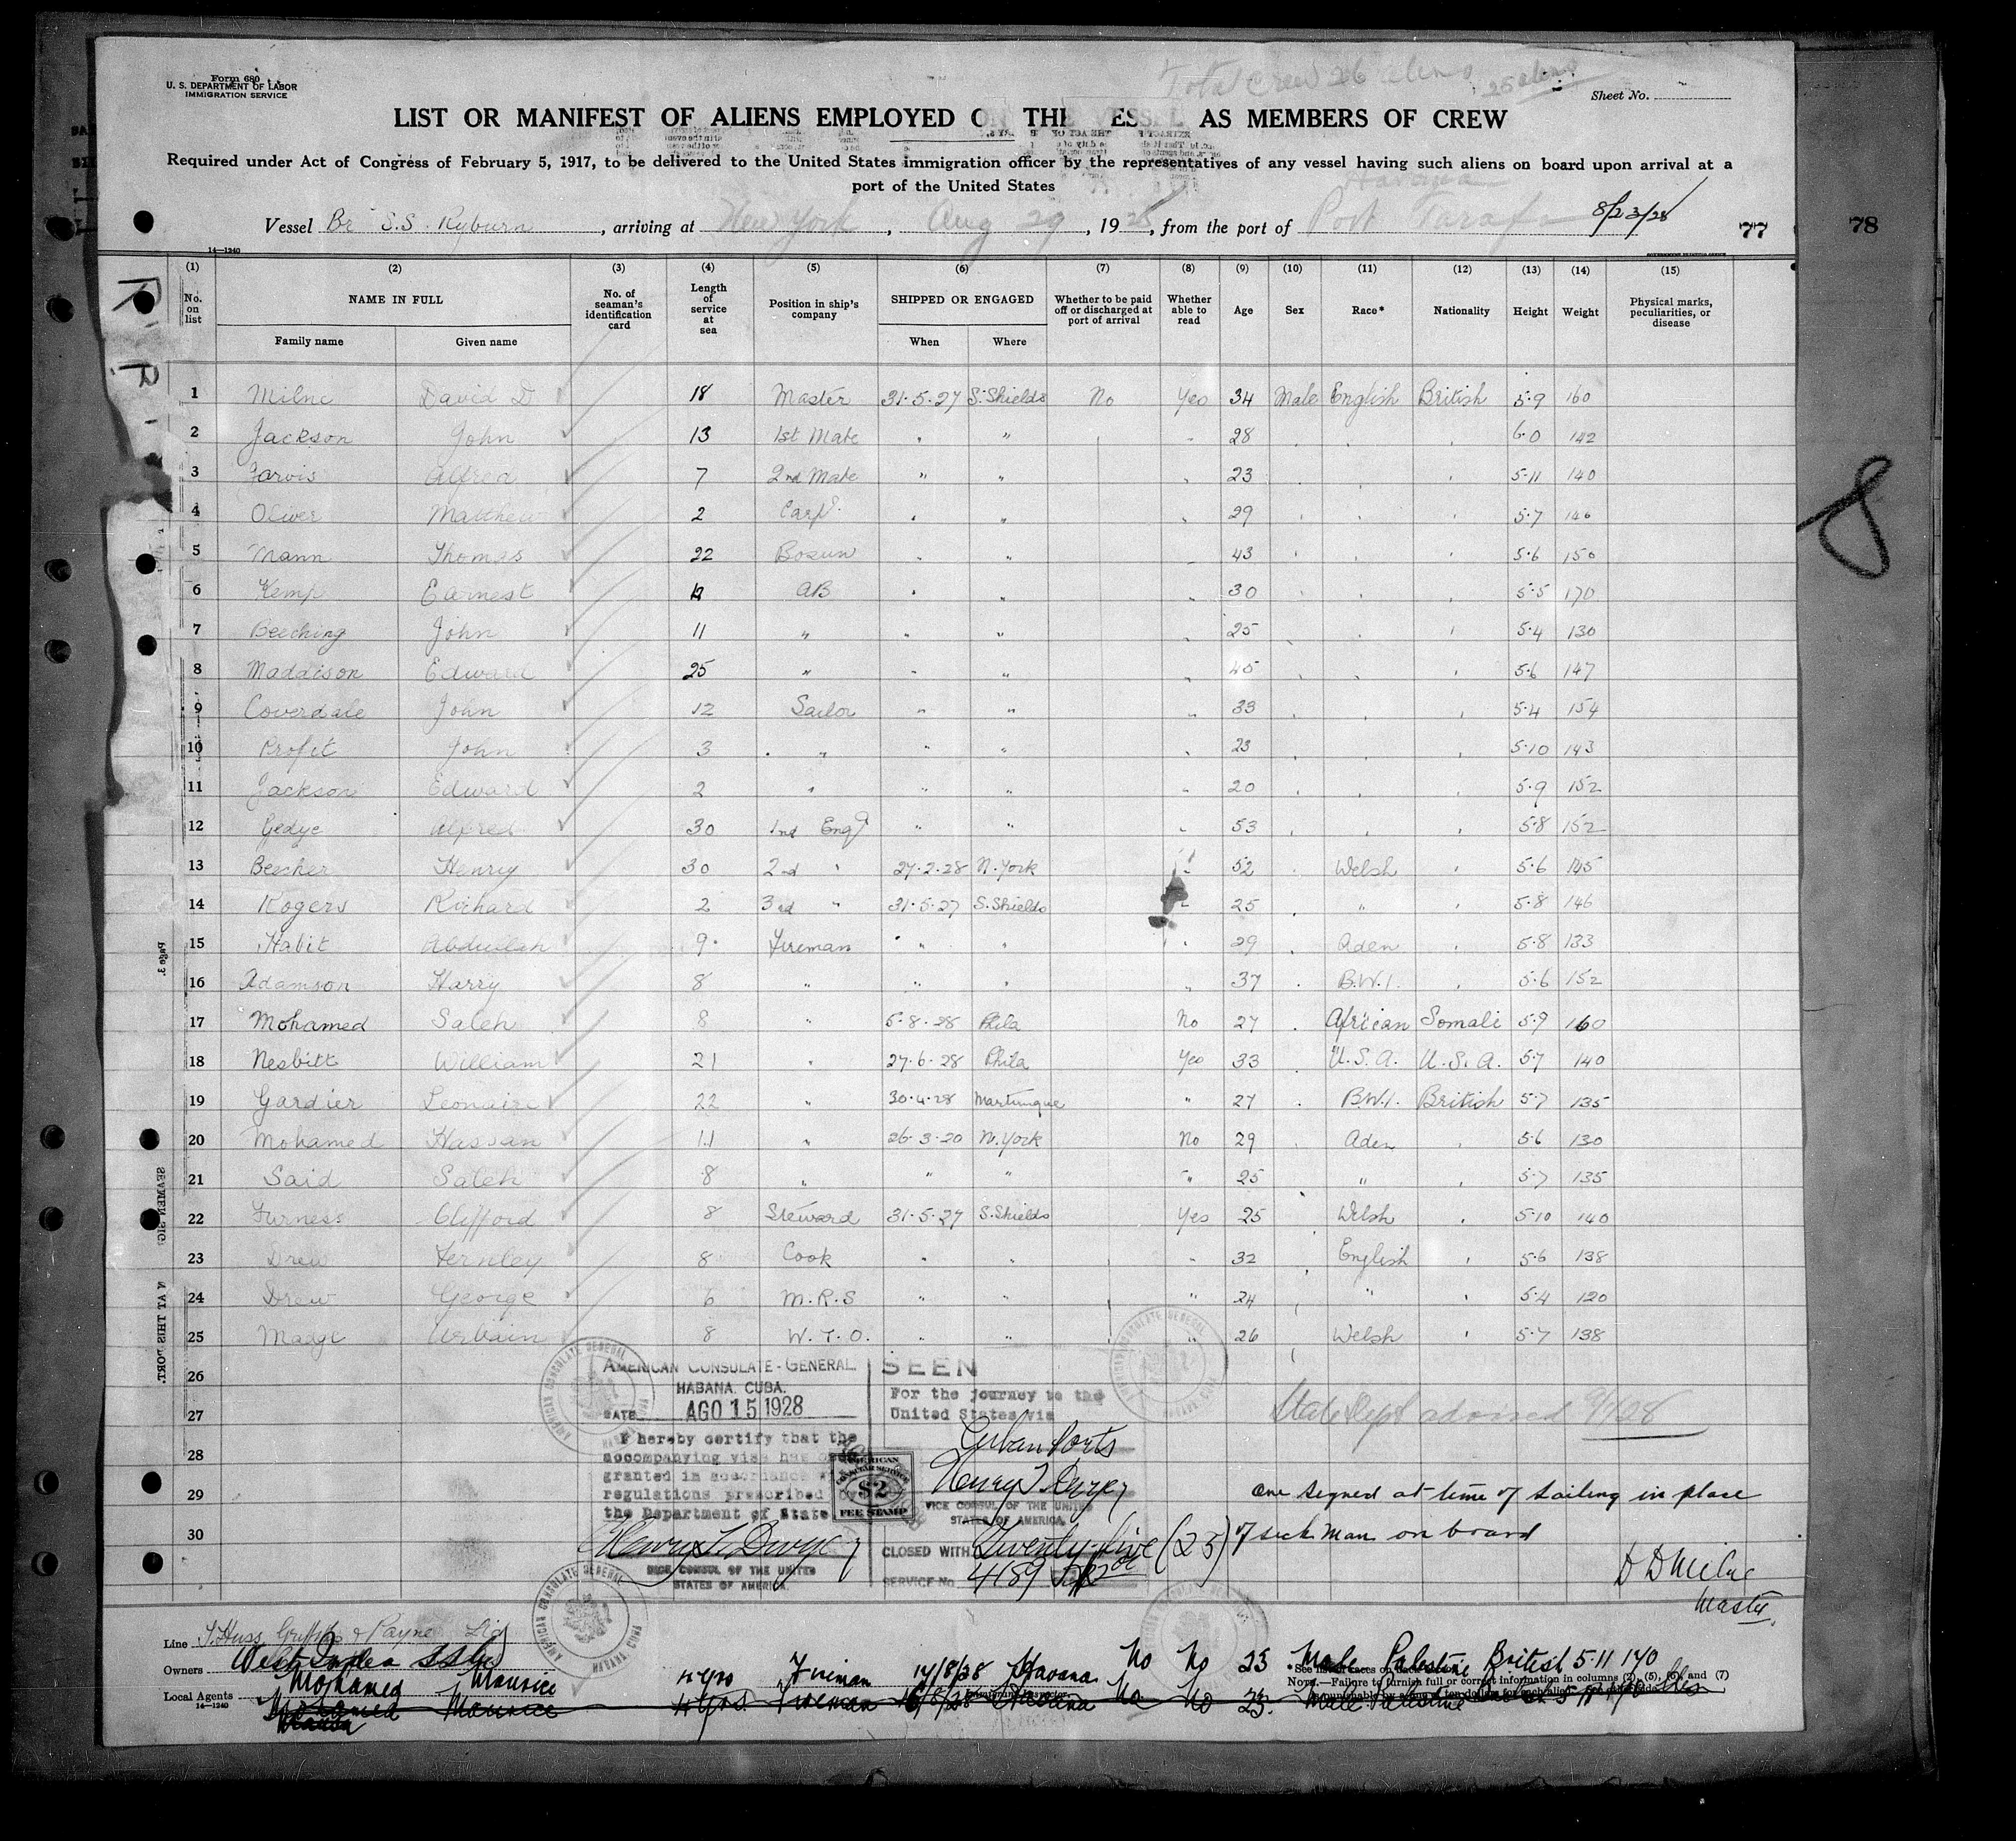 Form 680
U. S. DEPARTMENT OF LABOR
IMMIGRATION SERVICE
Total Crew 26 aliens 25 aliens
Sheet No.
LIST OR MANIFEST OF ALIENS EMPLOYED ON THE VESSEL AS MEMBERS OF CREW
Required under Act of Congress of February 5, 1917, to be delivered to the United States immigration officer by the representatives of any vessel having such aliens on board upon arrival at a
port of the United States
Havana
Vessel Br S.S. Ryburn, arriving at New York, Aug 29, 1928, from the port of Port Tarafa 8/23/28
77 78
14-1240
GOVERNMENT PRINTING OFFICE
(1) (2) (3) (4) (5) (6) (7) (8) (9) (10) (11) (12) (13) (14) (15)
No. on list NAME IN FULL Family name Given name No. of seaman's identification card Length of service at sea Position in ship's company SHIPPED OR ENGAGED When Where Whether to be paid off or discharged at port of arrival Whether able to read Age Sex Race* Nationality Height Weight Physical marks, peculiarities, or disease
1 Milne David D 18 Master 31.5.27 S. Shields No Yes 34 Male English British 5.9 160
2 Jackson John 13 1st Mate " " " 28 " " " 6.0 142
3 Jarvis Alfred 7 2nd Mate " " " 23 " " " 5.11 140
4 Oliver Matthew 2 Carp. " " " 29 " " " 5.7 146
5 Mann Thomas 22 Bosun " " " 43 " " " 5.6 150
6 Kemp Earnest 12 AB " " " 30 " " " 5.5 170
7 Beeching John 11 " " " " 25 " " " 5.4 130
8 Maddison Edward 25 " " " " 45 " " " 5.6 147
9 Coverdale John 12 Sailor " " " 33 " " " 5.4 154
10 Profit John 3 " " " " 23 " " " 5.10 143
11 Jackson Edward 2 " " " " 20 " " " 5.9 152
12 Gedye Alfred 30 1nd Engr " " " 53 " " " 5.8 152
13 Beecher Henry 30 2nd " 27.2.28 N. York " 52 " Welsh " 5.6 145
14 Rogers Richard 2 3rd " 31.5.27 S. Shields " 25 " " " 5.8 146
15 Habit Abdullah 9 Fireman " " " 29 " Aden " 5.8 133
16 Adamson Harry 8 " " " " 37 " B.W.I. " 5.6 152
17 Mohamed Saleh 8 " 5.8.28 Phila No 27 " African Somali 5.9 160
18 Nesbitt William 21 " 27.6.28 Phila Yes 33 " U.S.A. U.S.A. 5.7 140
19 Gardier Leonaire 22 " 30.4.28 Martinique " 27 " B.W.I. British 5.7 135
20 Mohamed Hassan 11 " 26.3.20 N. York No 29 Aden " 5.6 130
21 Said Saleh 8 " " " " 25 " 5.7 135
22 Furness Clifford 8 Steward 31.5.27 S. Shields Yes 25 " Welsh " 5.10 140
23 Drew Fernley 8 Cook " " " 32 English " 5.6 138
24 Drew George 6 M.R.S " " " 24 " " " 5.4 120
25 Madge Urbain 8 W.T.O. " " " 26 Welsh " 5.7 138
26
27
28
29
30
AMERICAN CONSULATE-GENERAL
HABANA, CUBA.
DATE AGO 15 1928
I hereby certify that the
accompanying visa has been
granted in accordance with
regulations prescribed by
the Department of State
Henry T. Dwyer
VICE CONSUL OF THE UNITED
STATES OF AMERICA.
AMERICAN CONSULAR SERVICE
$2
FEE STAMP
SEEN
For the journey to the
United States via
Cuban Ports
Henry T. Dwyer
VICE CONSUL OF THE UNITED
STATES OF AMERICA.
CLOSED WITH Twenty-five (25)
SERVICE No. 4189
AMERICAN CONSULATE GENERAL
State Dept advised
one signed at time of sailing in place
of sick man on board
D D Milne
Master.
8
Line
Owners West India
Local Agents
14-1240
Mohamed Maurice 4 yrs Fireman 14/8/28 Havana No No 23 Male Palestine British 5.11 140
*See list of races on back
NOTE.—Failure to furnish full or correct information in columns (2), (5), (6), and (7)
Mohamed Maurice 4 yrs. Fireman Havana No No 23. Male Palestine